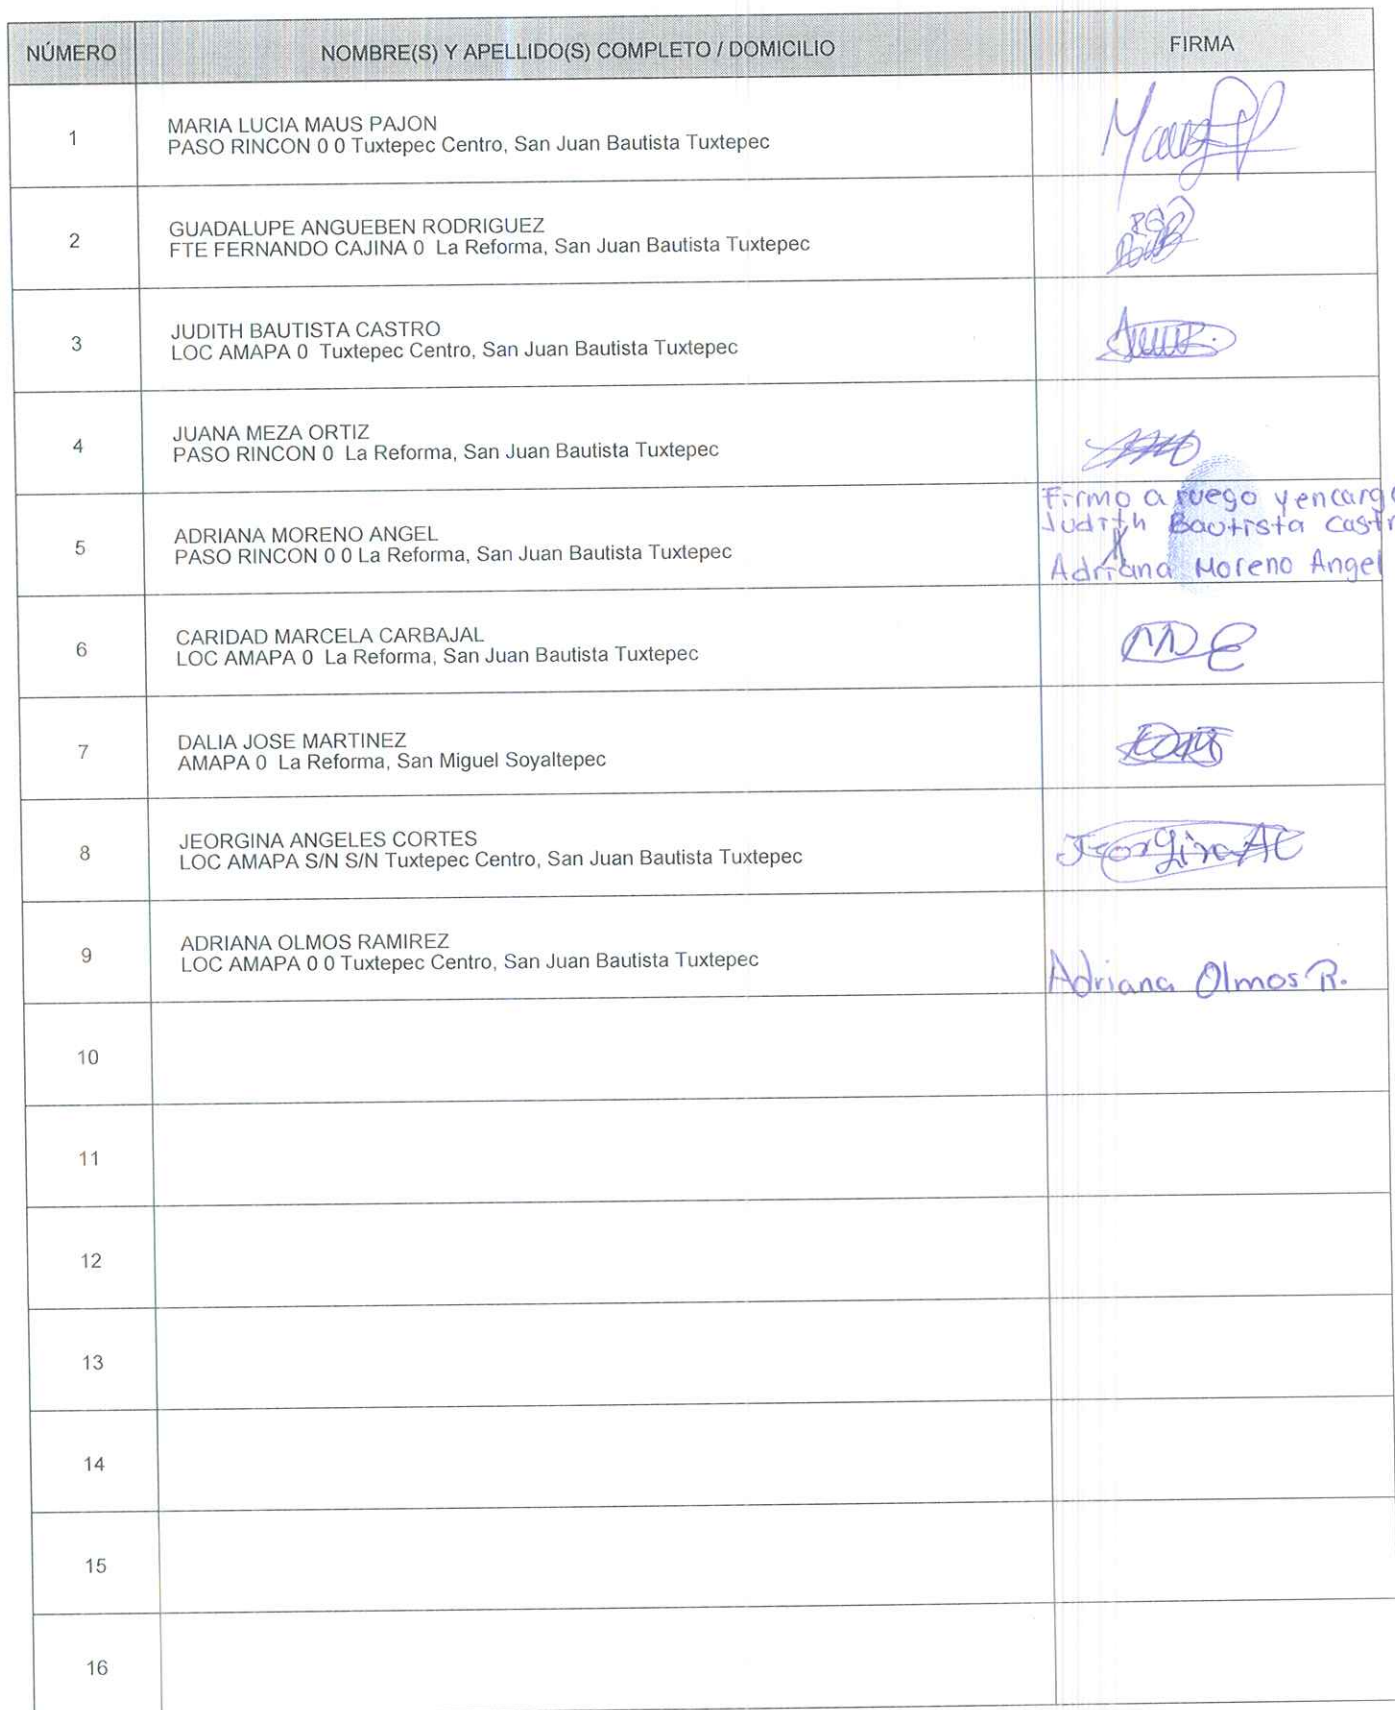 NÚMERO NOMBRE(S) Y APELLIDO(S) COMPLETO / DOMICILIO FIRMA
1 MARIA LUCIA MAUS PAJON
PASO RINCON 0 0 Tuxtepec Centro, San Juan Bautista Tuxtepec
2 GUADALUPE ANGUEBEN RODRIGUEZ
FTE FERNANDO CAJINA 0 La Reforma, San Juan Bautista Tuxtepec
3 JUDITH BAUTISTA CASTRO
LOC AMAPA 0 Tuxtepec Centro, San Juan Bautista Tuxtepec
4 JUANA MEZA ORTIZ
PASO RINCON 0 La Reforma, San Juan Bautista Tuxtepec
5 ADRIANA MORENO ANGEL
PASO RINCON 0 0 La Reforma, San Juan Bautista Tuxtepec
Firmo a ruego y encargo
Judith Bautista Castr
Adriana Moreno Angel
6 CARIDAD MARCELA CARBAJAL
LOC AMAPA 0 La Reforma, San Juan Bautista Tuxtepec
7 DALIA JOSE MARTINEZ
AMAPA 0 La Reforma, San Miguel Soyaltepec
8 JEORGINA ANGELES CORTES
LOC AMAPA S/N S/N Tuxtepec Centro, San Juan Bautista Tuxtepec
Jeorgina AC
9 ADRIANA OLMOS RAMIREZ
LOC AMAPA 0 0 Tuxtepec Centro, San Juan Bautista Tuxtepec
Adriana Olmos R.
10
11
12
13
14
15
16